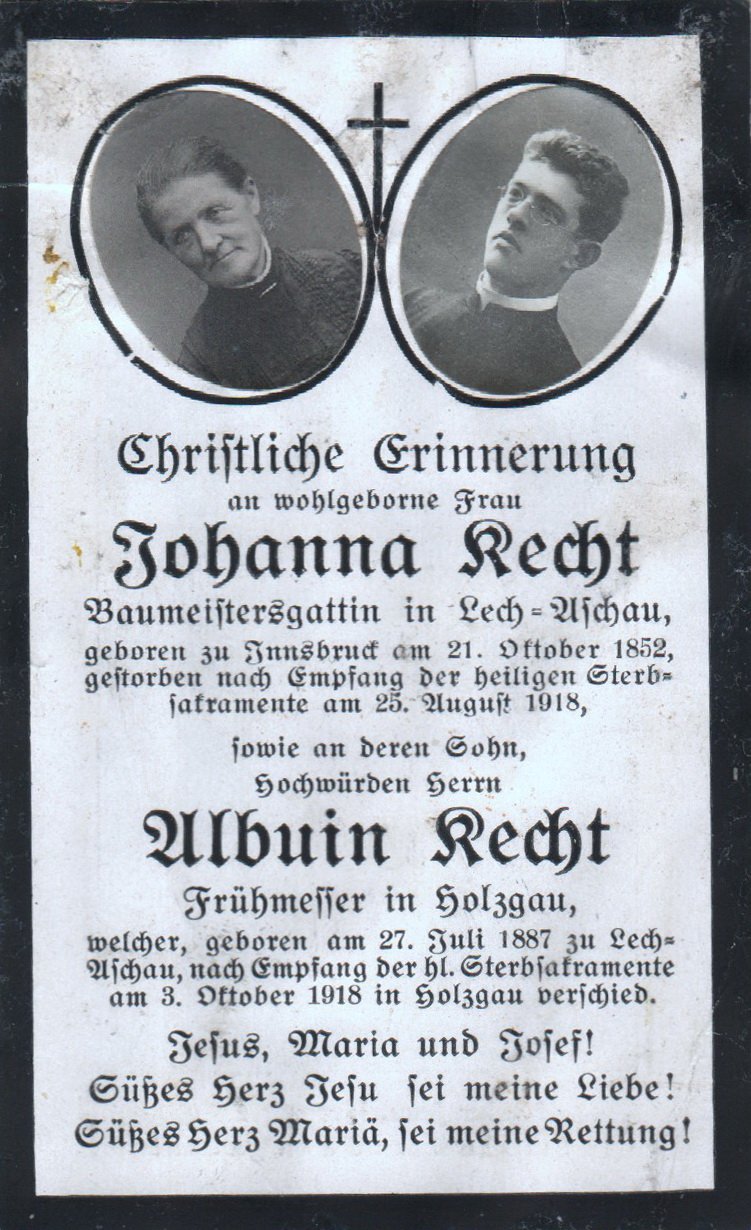 Christliche Erinnerung
an wohlgeborne Frau
Johanna Kecht
Baumeistersgattin in Lech=Aschau,
geboren zu Innsbruck am 21. Oktober 1852,
gestorben nach Empfang der heiligen Sterb=
sakramente am 25. August 1918,
sowie an deren Sohn,
Hochwürden Herrn
Albuin Kecht
Frühmesser in Holzgau,
welcher, geboren am 27. Juli 1887 zu Lech=
Aschau, nach Empfang der hl. Sterbsakramente
am 3. Oktober 1918 in Holzgau verschied.
Jesus, Maria und Josef!
Süßes Herz Jesu sei meine Liebe!
Süßes Herz Mariä, sei meine Rettung!